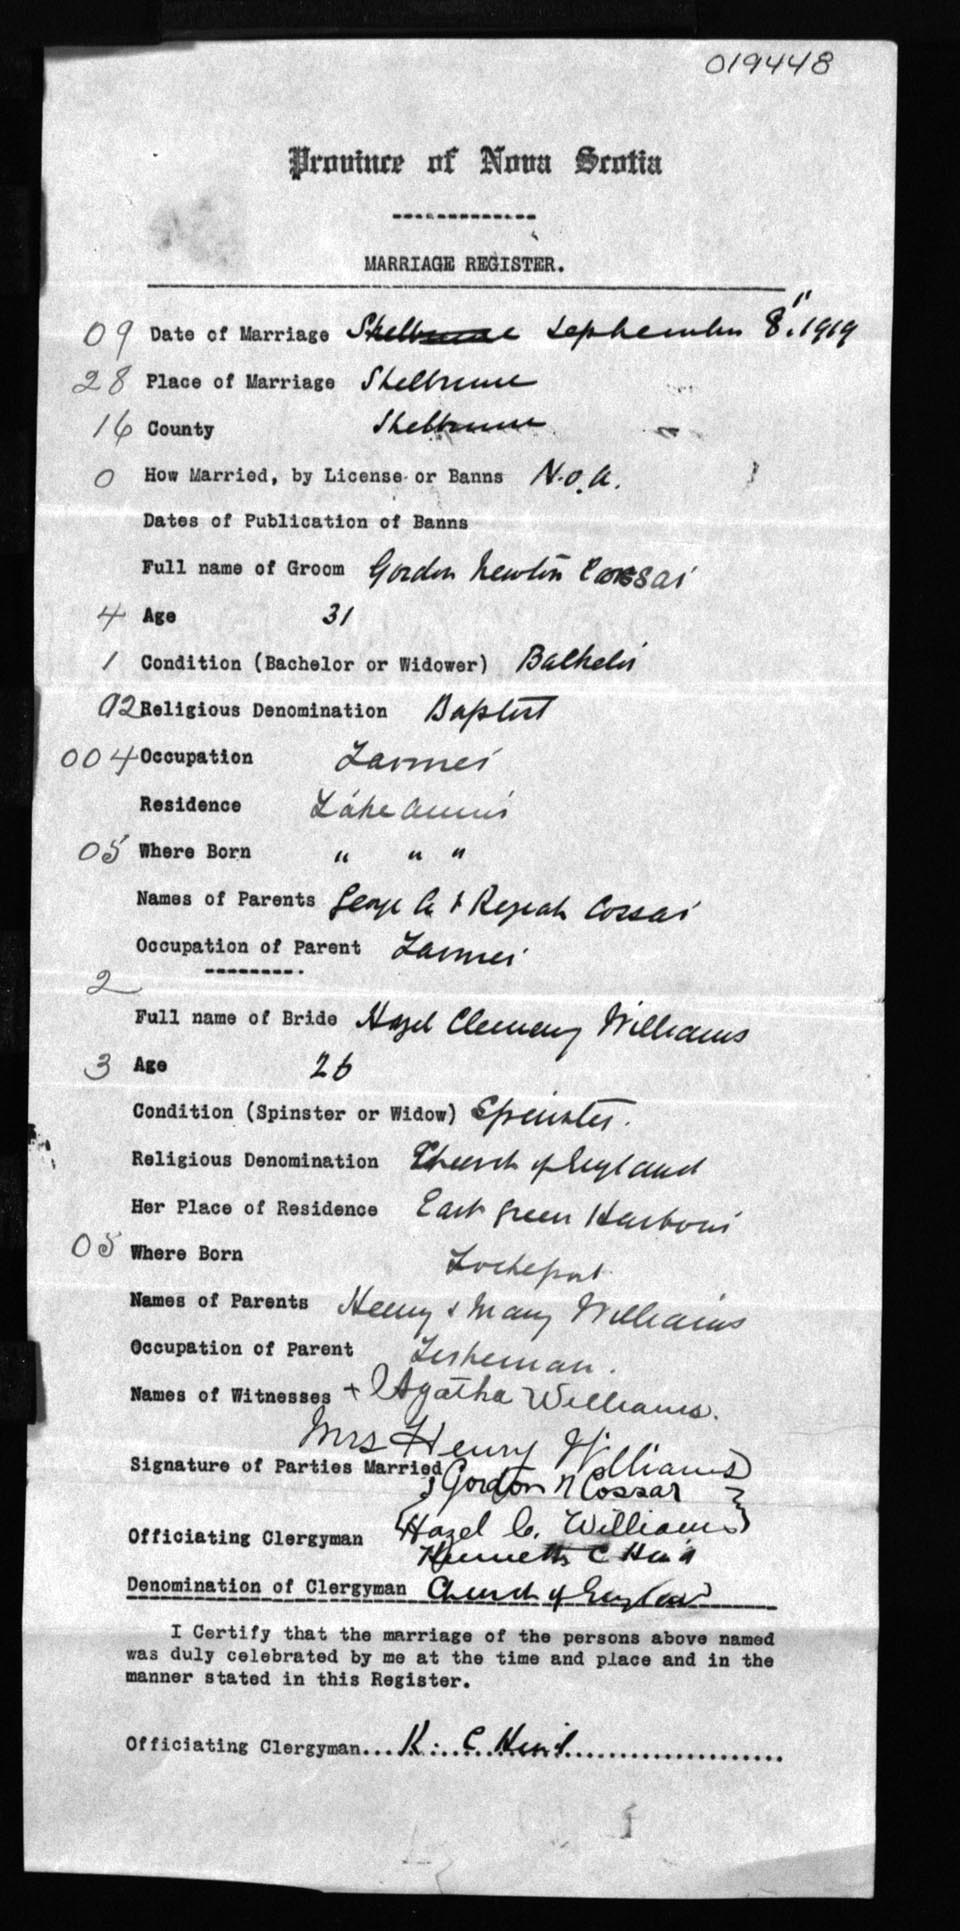 019448
Province of Nova Scotia
MARRIAGE REGISTER.
09 Date of Marriage Shelburne September 8", 1919
28 Place of Marriage Shelburne
16 County Shelburne
0 How Married, by License or Banns N.O.A.
Dates of Publication of Banns
Full name of Groom Gordon Newton Cossar
4 Age 31
1 Condition (Bachelor or Widower) Bachelor
92 Religious Denomination Baptist
004 Occupation Farmer
Residence Lake Annis
05 Where Born " " "
Names of Parents George A & Cossar
Occupation of Parent Farmer
2
Full name of Bride Hazel Clemency Williams
3 Age 26
Condition (Spinster or Widow) Spinster.
Religious Denomination Church of England
Her Place of Residence East Green Harbour
05 Where Born Lockeport
Names of Parents Henry & Mary Williams
Occupation of Parent Fisherman.
Names of Witnesses + Agatha Williams.
Mrs Henry Williams
Signature of Parties Married { Gordon N Cossar }
{ Hazel C. Williams }
Officiating Clergyman Kenneth C Hind
Denomination of Clergyman Church of England
I Certify that the marriage of the persons above named
was duly celebrated by me at the time and place and in the
manner stated in this Register.
Officiating Clergyman....K. C Hind......................